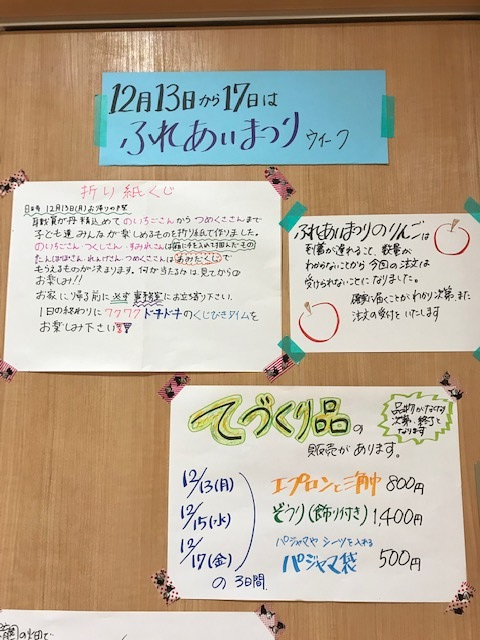 12月13日から17日は
ふれあいまつりウィーク
折り紙くじ
日時 12月13日(月)お帰りの時
教員が丹精込めてのいちごさんからつめくささんまで
子ども達みんなが楽しめるものを折り紙で作りました。
のいちごさん・つくしさん・すみれさんは箱に手を入れて掴んだもの
たんぽぽさん、れんげさん・つめくささんはあみだくじで
もらえるものが決まります。何が当たるかは見てからの
お楽しみ!!
お家に帰る前に必ず 裏教室にお立寄り下さい。
1日の終わりにワクワクドキドキのくじびきタイムを
お楽しみ下さい
ふれあいまつりのりんごは
到着が遅れること、数量が
わからないことから今回の注文は
受けられないことになりました。
確実に届くことがわかり次第、また
注文の受付をいたします
てづくり品の
販売があります。
品物がなくなり
次第、終了と
なります
12/13(月)
12/15(水)
12/17(金)
の3日間
エプロンと三角巾 800円
ぞうり(飾り付き) 1,400円
パジャマやシーツを入れる
パジャマ袋 500円
園の畑で